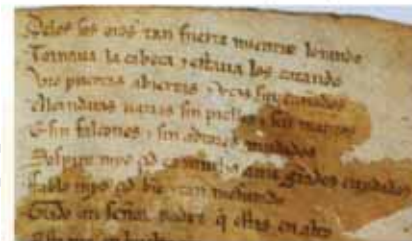 Delos sos oios tan fuerte mientre lorando
Tornaua la cabeça & estaua los catando
Vio puertas abiertas & vços sin cañados
Alcandaras uazias sin pielles & sin mantos
E sin falcones & sin adtores mudados
Sospiro myo çid ca mucho auie grandes cuydados
Fablo myo çid bien & tan mesurado
Grado señor padre q estas en alto